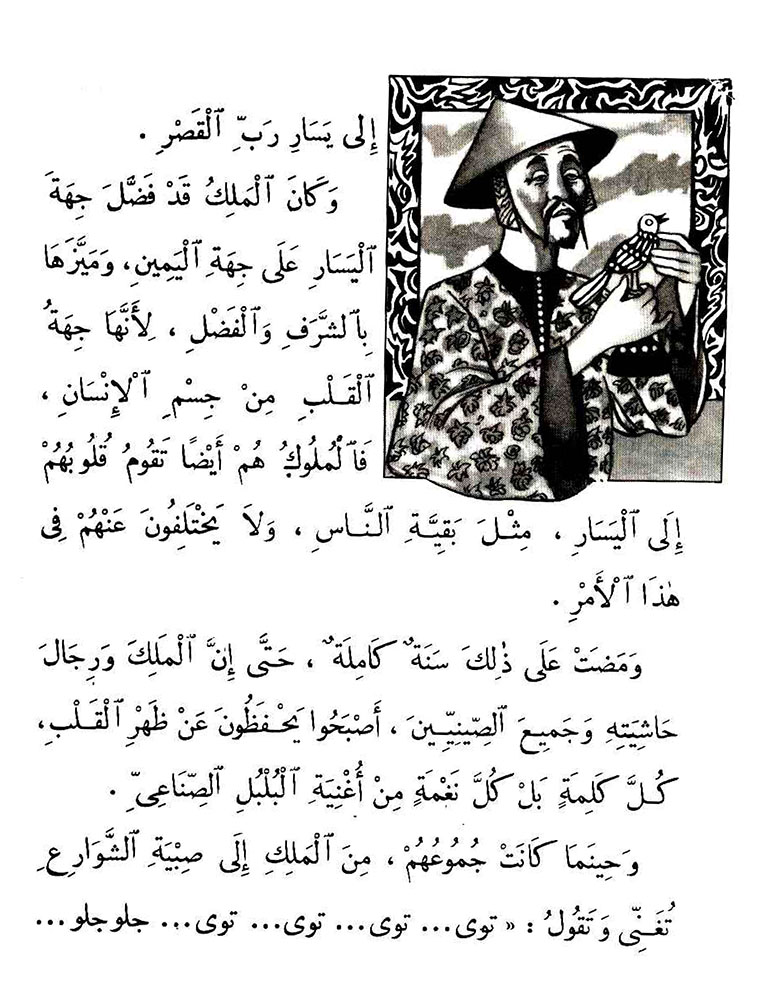 إِلى يَسَارِ رَبِّ ٱلْقَصْرِ .
وَكَانَ ٱلْمَلِكُ قَدْ فَضَّلَ جِهَةَ
ٱلْيَسَارِ عَلَى جِهَةِ ٱلْيَمِينِ، وَمَيَّزَهَا
بِٱلشَّرَفِ وَٱلْفَضْلِ ، لِأَنَّهَا جِهَةُ
ٱلْقَلْبِ مِنْ جِسْمِ ٱلْإِنْسَانِ ،
فَٱلْمُلُوكُ هُمْ أَيْضًا تَقُومُ قُلُوبُهُمْ
إِلَى ٱلْيَسَارِ ، مِثْلَ بَقِيَّةِ ٱلنَّاسِ ، وَلاَ يَخْتَلِفُونَ عَنْهُمْ فِى
هٰذَا ٱلْأَمْرِ .
وَمَضَتْ عَلَى ذٰلِكَ سَنَةٌ كَامِلَةٌ ، حَتَّى إِنَّ ٱلْمَلِكَ وَرِجَالَ
حَاشِيَتِهِ وَجَمِيعَ ٱلصِّينِيِّينَ ، أَصْبَحُوا يَحْفَظُونَ عَنْ ظَهْرِ ٱلْقَلْبِ،
كُلَّ كَلِمَةٍ بَلْ كُلَّ نَغْمَةٍ مِنْ أُغْنِيَةِ ٱلْبُلْبُلِ ٱلصِّنَاعِىِّ .
وَحِينَمَا كَانَتْ جُمُوعُهُمْ ، مِنَ ٱلْمَلِكِ إِلَى صِبْيَةِ ٱلشَّوَارِعِ
تُغَنِّى وَتَقُولُ : « توى... توى... توى... توى... جلو جلو ...